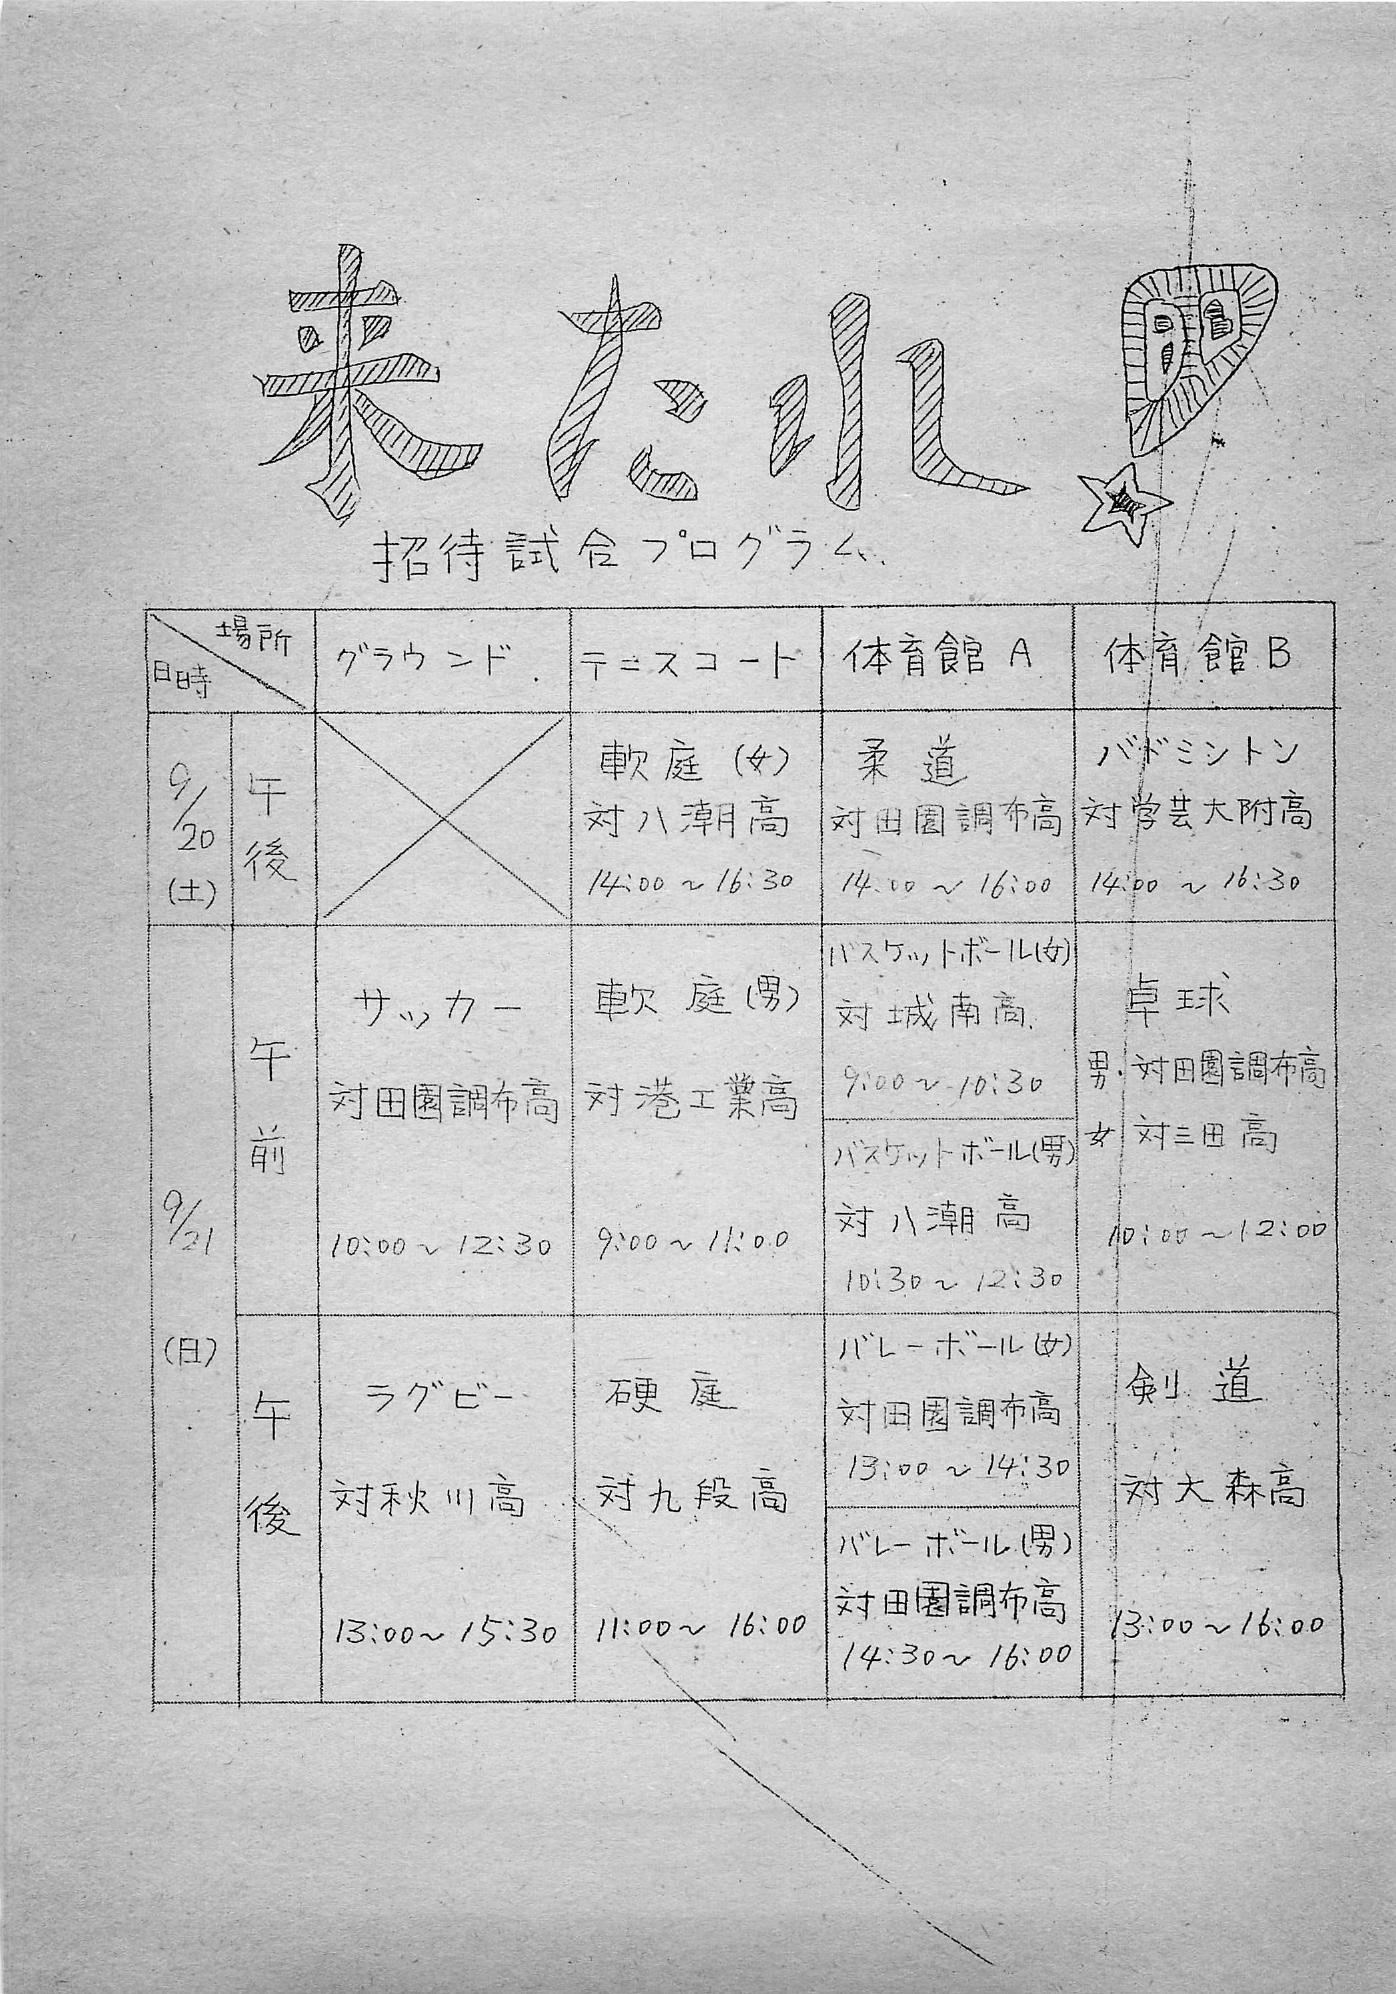 来たれ!
招待試合プログラム
場所
日時
グラウンド
テニスコート
体育館 A
体育館 B
9/20
(土)
午後
軟庭 (女)
対八潮高
14:00 ~ 16:30
柔道
対田園調布高
14:00 ~ 16:00
バドミントン
対学芸大附高
14:00 ~ 16:30
9/21
(日)
午前
サッカー
対田園調布高
10:00 ~ 12:30
軟庭 (男)
対港工業高
9:00 ~ 11:00
バスケットボール(女)
対城南高
9:00 ~ 10:30
バスケットボール(男)
対八潮高
10:30 ~ 12:30
卓球
男 対田園調布高
女 対三田高
10:00 ~ 12:00
午後
ラグビー
対秋川高
13:00 ~ 15:30
硬庭
対九段高
11:00 ~ 16:00
バレーボール(女)
対田園調布高
13:00 ~ 14:30
バレーボール(男)
対田園調布高
14:30 ~ 16:00
剣道
対大森高
13:00 ~ 16:00